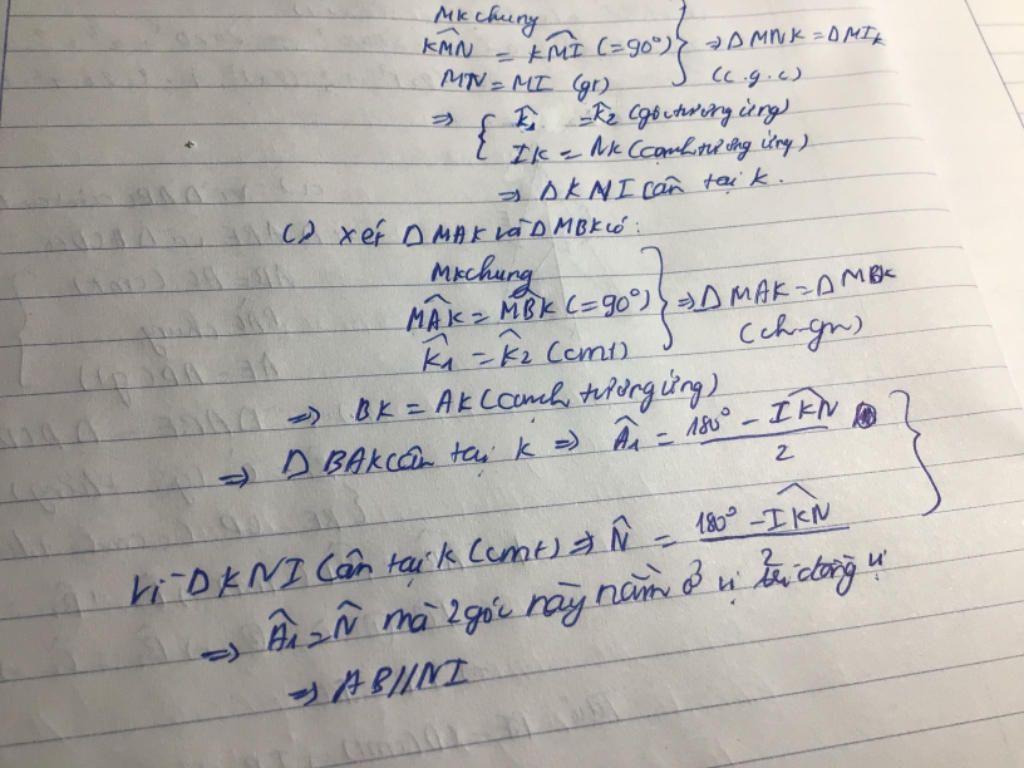 MK chung
KMN̂ = KMÎ (=90°) } ⇒ Δ MNK = Δ MIK
MN = MI (gt) (c.g.c)
⇒ { K̂1 = K̂2 (góc tương ứng)
IK = NK (cạnh tương ứng)
⇒ Δ KNI cân tại K.
c) xét Δ MAK và Δ MBK có:
MK chung
MÂK = MB̂K (=90°) } ⇒ Δ MAK = Δ MBK
K̂1 = K̂2 (cmt) (ch-gn)
⇒ BK = AK (cạnh tương ứng)
⇒ Δ BAK cân tại K ⇒ Â1 = (180° - IK̂N)/2 }
Vì Δ KNI cân tại K (cmt) ⇒ N̂ = (180° - IK̂N)/2
⇒ Â1 = N̂ mà 2 góc này nằm ở vị trí đồng vị
⇒ AB // NI